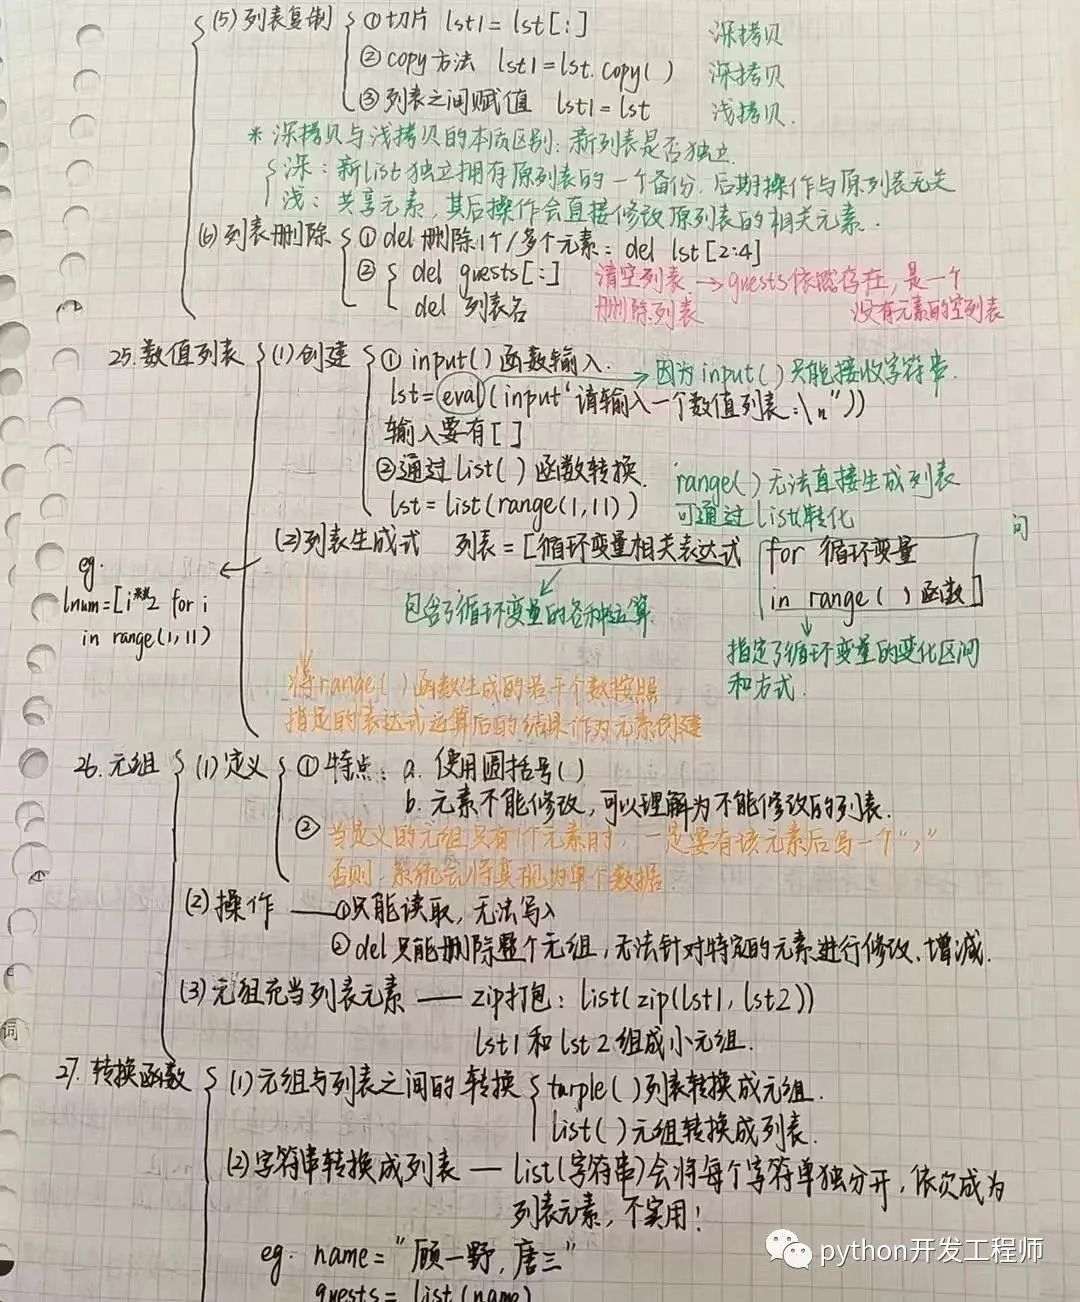 (5) 列表复制 ① 切片 lst1 = lst[:] 深拷贝
② copy方法 lst1 = lst.copy() 深拷贝
③ 列表之间赋值 lst1 = lst 浅拷贝.
* 深拷贝与浅拷贝的本质区别: 新列表是否独立.
深: 新list独立拥有原列表的一个备份, 后期操作与原列表无关
浅: 共享元素, 其后操作会直接修改原列表的相关元素.
(6) 列表删除 ① del 删除1个/多个元素: del lst[2:4]
② del guests[:] 清空列表 → guests依然存在, 是一个
没有元素的空列表
del 列表名 删除列表
25. 数值列表 (1) 创建 ① input() 函数输入.
→ 因为input()只能接收字符串.
lst = eval(input‘请输入一个数值列表:\n”))
输入要有[]
② 通过list()函数转换.
lst = list(range(1,11))
range()无法直接生成列表
可通过list转化
问
(2) 列表生成式 列表 = [循环变量相关表达式 for 循环变量
in range()函数]
eg.
lnum=[i**2 for i
in range(1,11)
包含了循环变量的各种运算.
指定了循环变量的变化区间
和方式.
将range()函数生成的若干个数按照
指定的表达式运算后的结果作为元素创建
26. 元组 (1) 定义 ① 特点: a. 使用圆括号()
b. 元素不能修改, 可以理解为不能修改的列表.
② 当定义的元组只有1个元素时, 一定要有该元素后写一个“,”
否则, 系统会将其视为单个数据.
(2) 操作 — ①只能读取, 无法写入
② del 只能删除整个元组, 无法针对特定的元素进行修改、增减.
(3) 元组充当列表元素 — zip打包: list(zip(lst1, lst2))
lst1 和 lst2 组成小元组.
词
27. 转换函数 (1) 元组与列表之间的转换 turple()列表转换成元组.
list()元组转换成列表.
(2) 字符串转换成列表 — list(字符串)会将每个字符单独分开, 依次成为
列表元素, 不实用!
eg. name = "顾一野, 唐三"
guests = list(name)
python开发工程师